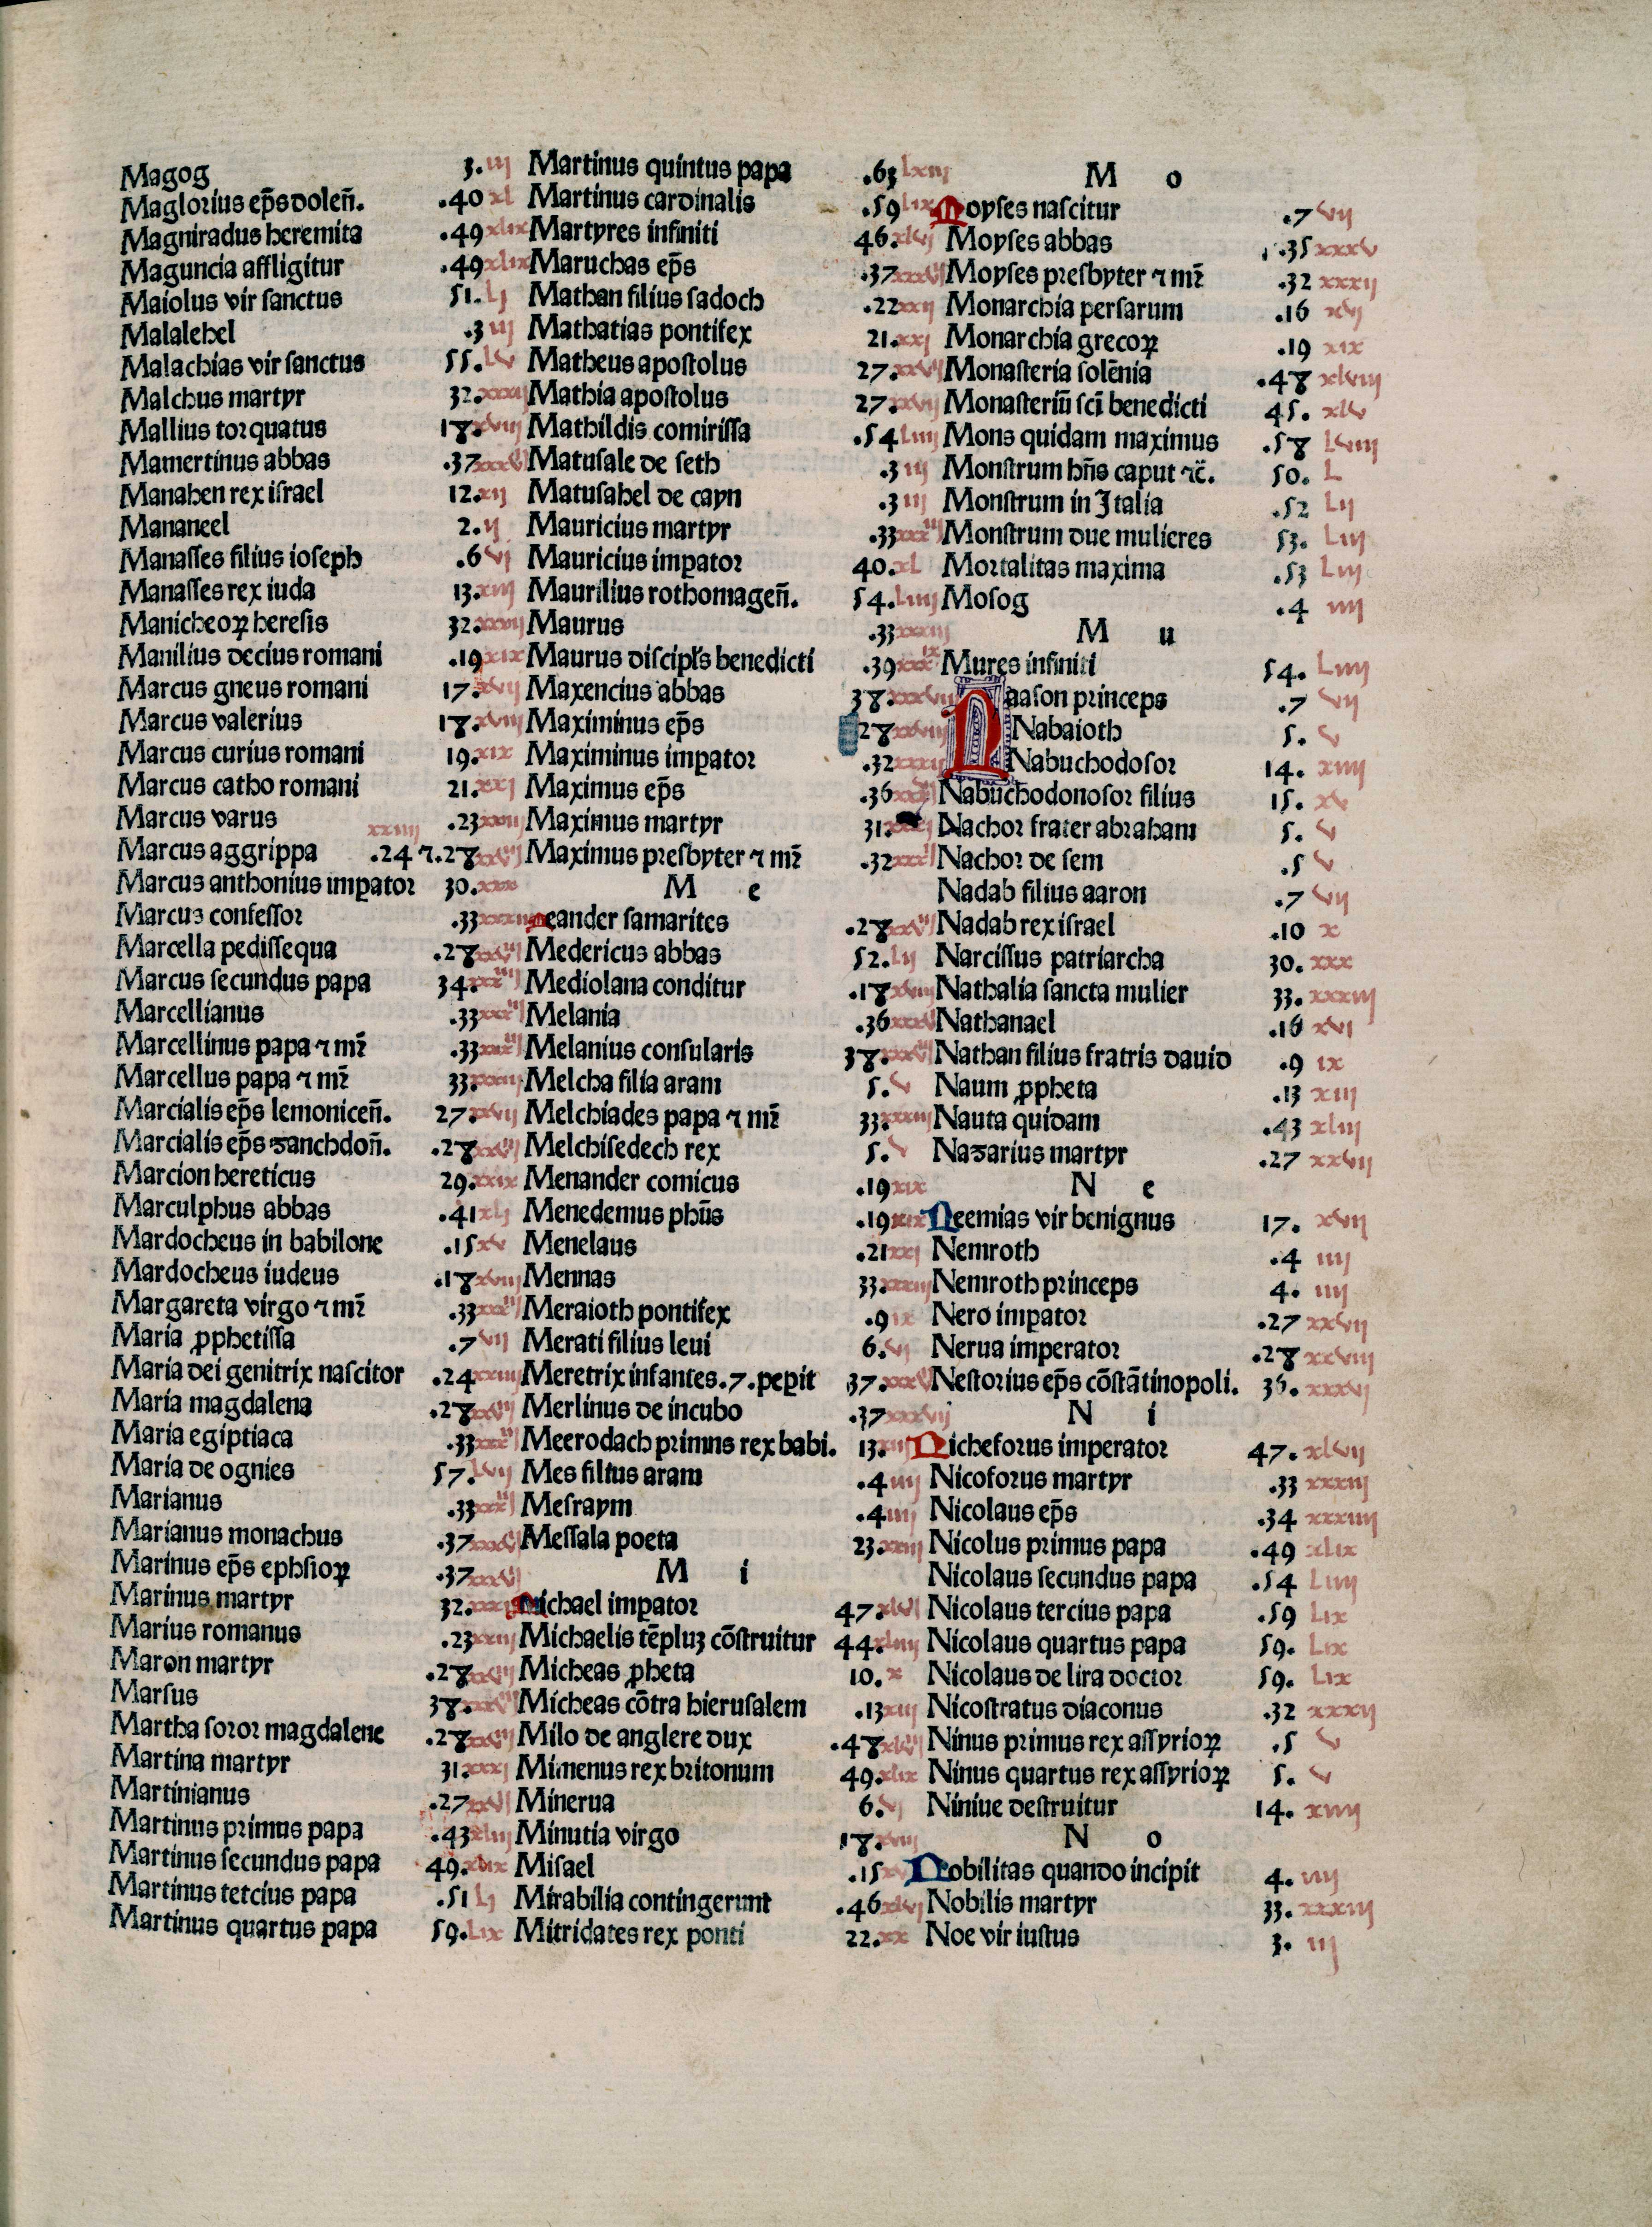 Magog 3. iij
Maglorius ep̄s dolen̄. .40 xl
Magniradus heremita .49 xlix
Maguncia affligitur .49 xlix
Maiolus vir sanctus 51. Lj
Malalehel .3 iij
Malachias vir sanctus 55. Lv
Malchus martyr 32. xxxij
Mallius torquatus 18. xviij
Mamertinus abbas .37 xxxvij
Manahen rex israel 12. xij
Mananeel 2. ij
Manasses filius ioseph .6 vj
Manasses rex iuda 13. xiij
Manicheoꝝ heresis 32.
Manilius decius romani .19 xix
Marcus gneus romani 17. xvij
Marcus valerius 18. xviij
Marcus curius romani 19. xix
Marcus catho romani 21. xxj
Marcus varus .23 xxiij
Marcus aggrippa xxiiij .24 ⁊.28 xxviij
Marcus anthonius imꝑator 30. xxx
Marcus confessor .33 xxxiij
Marcella pedissequa .28 xxviij
Marcus secundus papa 34. xxxiiij
Marcellianus .33 xxxiij
Marcellinus papa ⁊ mr̄ .33 xxxiij
Marcellus papa ⁊ mr̄ 33. xxxiij
Marcialis ep̄s lemonicen̄. 27. xxvij
Marcialis ep̄s zanchdon̄. .28 xxviij
Marcion hereticus 29. xxix
Marculphus abbas .41 xlj
Mardocheus in babilone .15 xv
Mardocheus iudeus .18 xviij
Margareta virgo ⁊ mr̄ .33 xxxiij
Maria ꝓphetissa .7 vij
Maria dei genitrix nascitor .24 xxiiij
Maria magdalena .28 xxviij
Maria egiptiaca .33 xxxiij
Maria de ognies 57. Lvij
Marianus .33 xxxiij
Marianus monachus .37 xxxvij
Marinus ep̄s ephsioꝝ .37 xxxvij
Marinus martyr 32. xxxij
Marius romanus .23 xxiij
Maron martyr .28 xxviij
Marsus 38. xxxviij
Martha soror magdalene .28 xxviij
Martina martyr 31. xxxj
Martinianus .27 xxvij
Martinus primus papa .43 xliij
Martinus secundus papa 49. xlix
Martinus tercius papa .51 Lj
Martinus quartus papa 59. Lix
Martinus quintus papa .63 lxiij
Martinus cardinalis .59 lix
Martyres infiniti 46. xlvj
Maruchas ep̄s .37 xxxvij
Mathan filius sadoch .22 xxij
Mathatias pontifex 21. xxj
Matheus apostolus 27. xxvij
Mathia apostolus 27. xxvij
Mathildis comirissa .54 Liiij
Matusale de seth .3 iij
Matusahel de cayn .3 iij
Mauricius martyr .33 xxxiij
Mauricius imꝑator 40. xl
Maurilius rothomagen̄. 54. Liiij
Maurus .33 xxxiij
Maurus discipl̄s benedicti .39 xxxix
Maxencius abbas 38. xxxviij
Maximinus ep̄s 28 xxviij
Maximinus imꝑator .32 xxxij
Maximus ep̄s .36 xxxvj
Maximus martyr 31. xxxj
Maximus presbyter ⁊ mr̄ .32 xxxij
M e
Meander samarites .28 xxviij
Medericus abbas 52. Lij
Mediolana conditur .18 xviij
Melania .36 xxxvj
Melanius consularis 38. xxxviij
Melcha filia aram 5. v
Melchiades papa ⁊ mr̄ 33. xxxiij
Melchisedech rex 5. v
Menander comicus .19 xix
Menedemus phūs .19 xix
Menelaus .21 xxj
Mennas 33. xxxiij
Meraioth pontifex .9 ix
Merati filius leui 6. vj
Meretrix infantes .7. peꝑit 37. xxxvij
Merlinus de incubo .37 xxxvij
Meerodach primns rex babi. 13. xiij
Mes filius aram .4 iiij
Mesraym .4 iiij
Messala poeta 23. xxiij
M i
Michael imꝑator 47. xlvij
Michaelis tēpluꝫ cōstruitur 44. xliiij
Micheas ꝓheta 10. x
Micheas cōtra hierusalem .13 xiij
Milo de anglere dux .48 xlviij
Mimenus rex britonum 49. xlix
Minerua 6. vj
Minutia virgo 18. xviij
Misael .15 xv
Mirabilia contingerunt .46 xlvj
Mitridates rex ponti 22. xx
M o
Moyses nascitur .7 vij
Moyses abbas .35 xxxv
Moyses presbyter ⁊ mr̄ .32 xxxij
Monarchia persarum .16 xvj
Monarchia grecoꝝ .19 xix
Monasteria solēnia .48 xlviij
Monasteriū sci̅ benedicti 45. xlv
Mons quidam maximus .58 Lviij
Monstrum hn̄s caput ⁊c̄. 50. L
Monstrum in Italia .52 Lij
Monstrum due mulieres 53. Liij
Mortalitas maxima .53 Liij
Mosog .4 iiij
M u
Mures infiniti 54. Liiij
Naason princeps .7 vij
Nabaioth 5. v
Nabuchodosor 14. xiiij
Nabuchodonosor filius 15. xv
Nachor frater abraham 5. v
Nachor de sem .5 v
Nadab filius aaron .7 vij
Nadab rex israel .10 x
Narcissus patriarcha 30. xxx
Nathalia sancta mulier 33. xxxiij
Nathanael .16 xvj
Nathan filius fratris dauid .9 ix
Naum ꝓpheta .13 xiij
Nauta quidam .43 xliij
Nazarius martyr .27 xxvij
N e
Neemias vir benignus 17. xvij
Nemroth .4 iiij
Nemroth princeps 4. iiij
Nero imꝑator .27 xxvij
Nerua imperator .28 xxviij
Nestorius ep̄s cōstātinopoli. 36. xxxvj
N i
Nicheforus imperator 47. xlvij
Nicoforus martyr .33 xxxiij
Nicolaus ep̄s .34 xxxiiij
Nicolus primus papa .49 xlix
Nicolaus secundus papa .54 Liiij
Nicolaus tercius papa .59 Lix
Nicolaus quartus papa 59. Lix
Nicolaus de lira doctor 59. Lix
Nicostratus diaconus .32 xxxij
Ninus primus rex assyrioꝝ .5 v
Ninus quartus rex assyrioꝝ 5. v
Niniue destruitur 14. xiiij
N o
Nobilitas quando incipit 4. iiij
Nobilis martyr 33. xxxiij
Noe vir iustus 3. iij